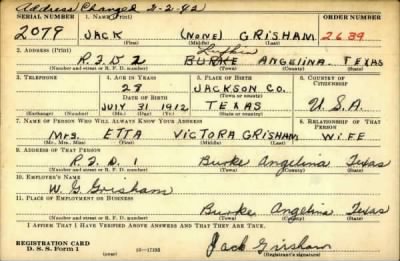 Address Changed 2-2-42
SERIAL NUMBER 1. NAME (Print) ORDER NUMBER
2079 JACK (NONE) GRISHAM 2639
(First) (Middle) (Last)
2. ADDRESS (Print)
Lufkin
R.F.D 2 BURKE ANGELINA TEXAS
(Number and street or R. F. D. number) (Town) (County) (State)
3. TELEPHONE 4. AGE IN YEARS 5. PLACE OF BIRTH 6. COUNTRY OF CITIZENSHIP
28 JACKSON CO.
DATE OF BIRTH (Town or county)
JULY 31 1912 TEXAS U.S.A.
(Exchange) (Number) (Mo.) (Day) (Yr.) (State or country)
7. NAME OF PERSON WHO WILL ALWAYS KNOW YOUR ADDRESS 8. RELATIONSHIP OF THAT PERSON
Mrs. ETTA VICTORA GRISHAM WIFE
(Mr., Mrs., Miss) (First) (Middle) (Last)
9. ADDRESS OF THAT PERSON
R.F.D. 1 Burke Angelina Texas
(Number and street or R. F. D. number) (Town) (County) (State)
10. EMPLOYER'S NAME
W. G. Grisham
11. PLACE OF EMPLOYMENT OR BUSINESS
Burke Angelina Texas
(Number and street or R. F. D. number) (Town) (County) (State)
I AFFIRM THAT I HAVE VERIFIED ABOVE ANSWERS AND THAT THEY ARE TRUE.
REGISTRATION CARD
D. S. S. Form 1 16—17105 Jack Grisham
(Registrant's signature)